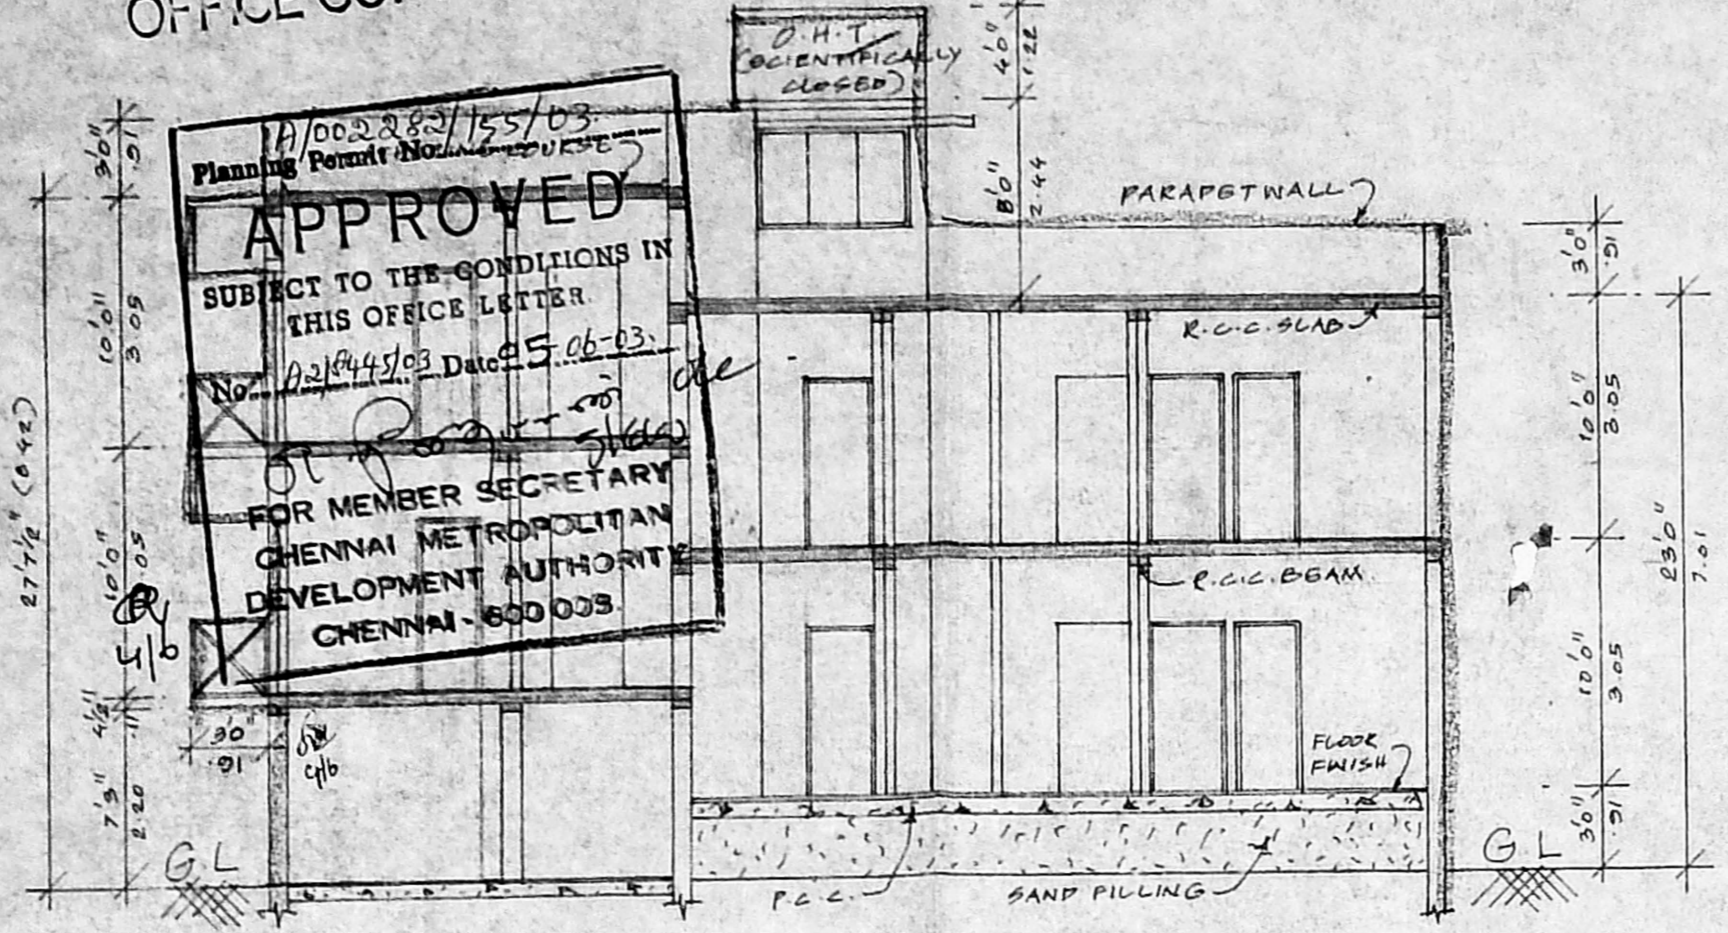 OFFICE CO
O.H.T.
(SCIENTIFICALLY
CLOSED)
4'0"
1.22
8'0"
2.44
A/002282/155/03
Planning Permit No.
COURSE
APPROVED
SUBJECT TO THE CONDITIONS IN
THIS OFFICE LETTER.
No. A2/8445/03 Date 05-06-03.
FOR MEMBER SECRETARY
CHENNAI METROPOLITAN
DEVELOPMENT AUTHORITY
CHENNAI - 600 008
3'0"
.91
10'0"
3.05
10'0"
3.05
4/6
4 1/2"
.11
7'3"
2.20
27'7 1/2" (8.42)
3'0"
.91
G.L
PARAPET WALL
R.C.C. SLAB
R.C.C. BEAM
FLOOR
FINISH
P.C.C.
SAND FILLING
3'0"
.91
10'0"
3.05
10'0"
3.05
3'0"
.91
23'0"
7.01
G.L